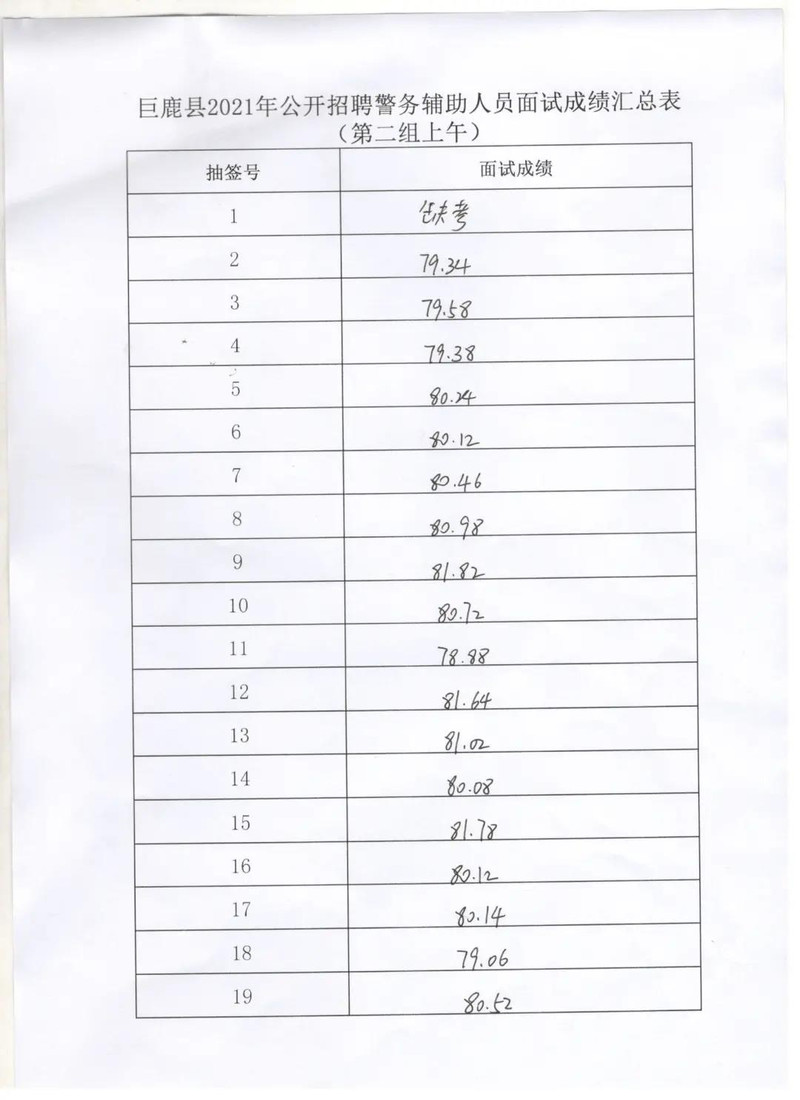 巨鹿县2021年公开招聘警务辅助人员面试成绩汇总表
（第二组上午）
抽签号 面试成绩
1 缺考
2 79.34
3 79.58
4 79.38
5 80.24
6 80.12
7 80.46
8 80.98
9 81.82
10 80.72
11 78.88
12 81.64
13 81.02
14 80.08
15 81.78
16 80.12
17 80.14
18 79.06
19 80.52